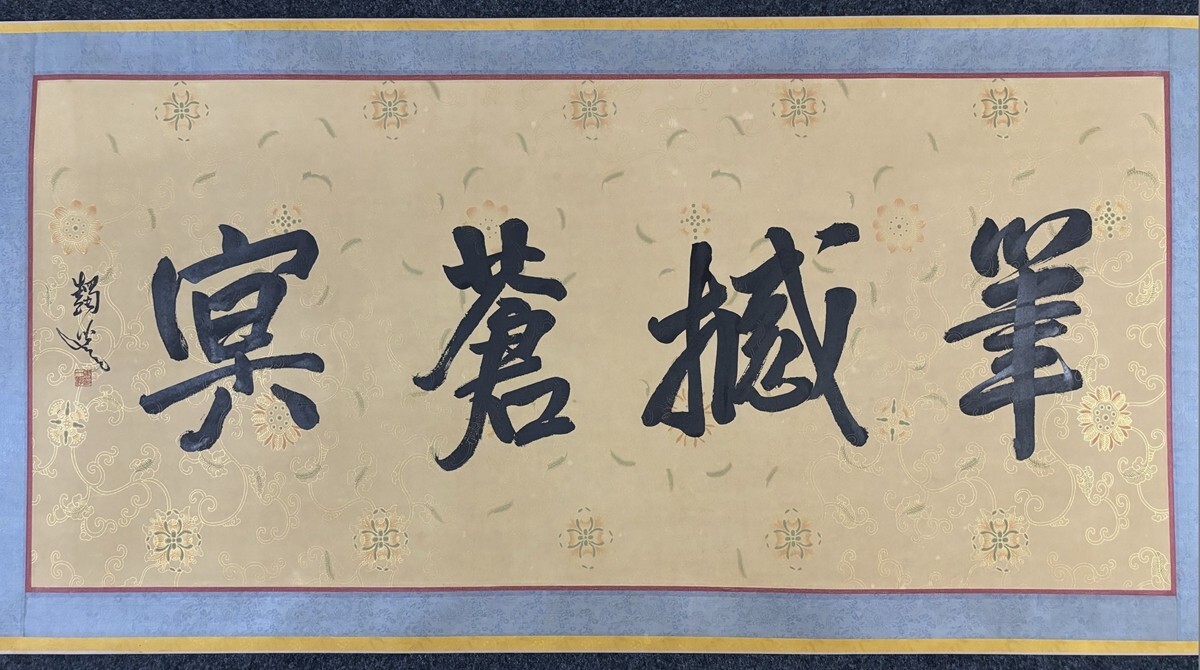 筆撼蒼冥